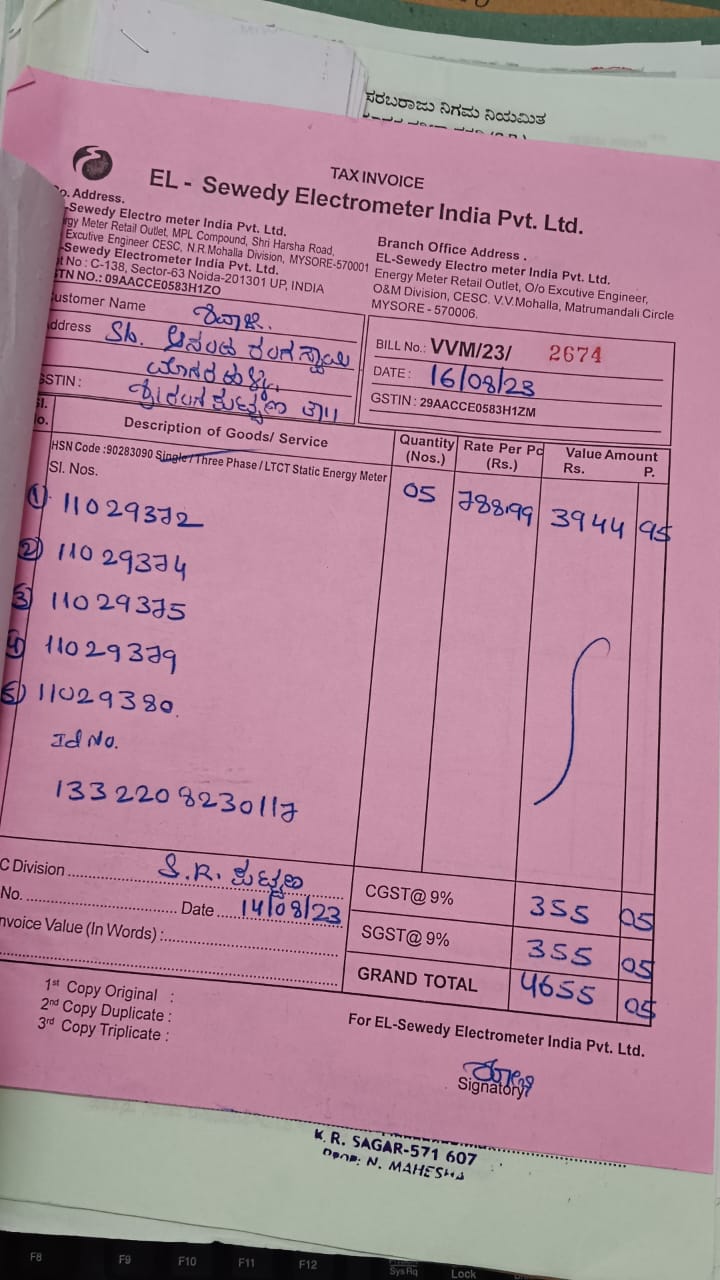 ಸರಬರಾಜು ನಿಗಮ ನಿಯಮಿತ
TAX INVOICE
EL - Sewedy Electrometer India Pvt. Ltd.
o. Address.
-Sewedy Electro meter India Pvt. Ltd.
rgy Meter Retail Outlet, MPL Compound, Shri Harsha Road,
Excutive Engineer CESC, N.R.Mohalla Division, MYSORE-570001
-Sewedy Electrometer India Pvt. Ltd.
t No : C-138, Sector-63 Noida-201301 UP, INDIA
TN NO.: 09AACCE0583H1ZO
Branch Office Address .
EL-Sewedy Electro meter India Pvt. Ltd.
Energy Meter Retail Outlet, O/o Excutive Engineer,
O&M Division, CESC. V.V.Mohalla, Matrumandali Circle
MYSORE - 570006.
ustomer Name
ddress Sb. ಆನಂದ ರಂಗಸ್ವಾಮಿ
GSTIN :
BILL No.: VVM/23/ 2674
DATE : 16/08/23
GSTIN : 29AACCE0583H1ZM
Sl. No. Description of Goods/ Service Quantity (Nos.) Rate Per Pc (Rs.) Value Amount Rs. P.
HSN Code :90283090 Single / Three Phase / LTCT Static Energy Meter
Sl. Nos. 05 788.99 3944 95
1) 11029372
2) 11029374
3) 11029375
4) 11029379
5) 11029380.
Id No.
1332208230117
C Division S.R.
No. Date 14/08/23
nvoice Value (In Words) :
CGST@ 9% 355 05
SGST@ 9% 355 05
GRAND TOTAL 4655 05
1st Copy Original :
2nd Copy Duplicate :
3rd Copy Triplicate :
For EL-Sewedy Electrometer India Pvt. Ltd.
Signatory
K.R. SAGAR-571 607
PROP: N. MAHESHA
F8 F9 F10 F11 F12 SysRq Lock